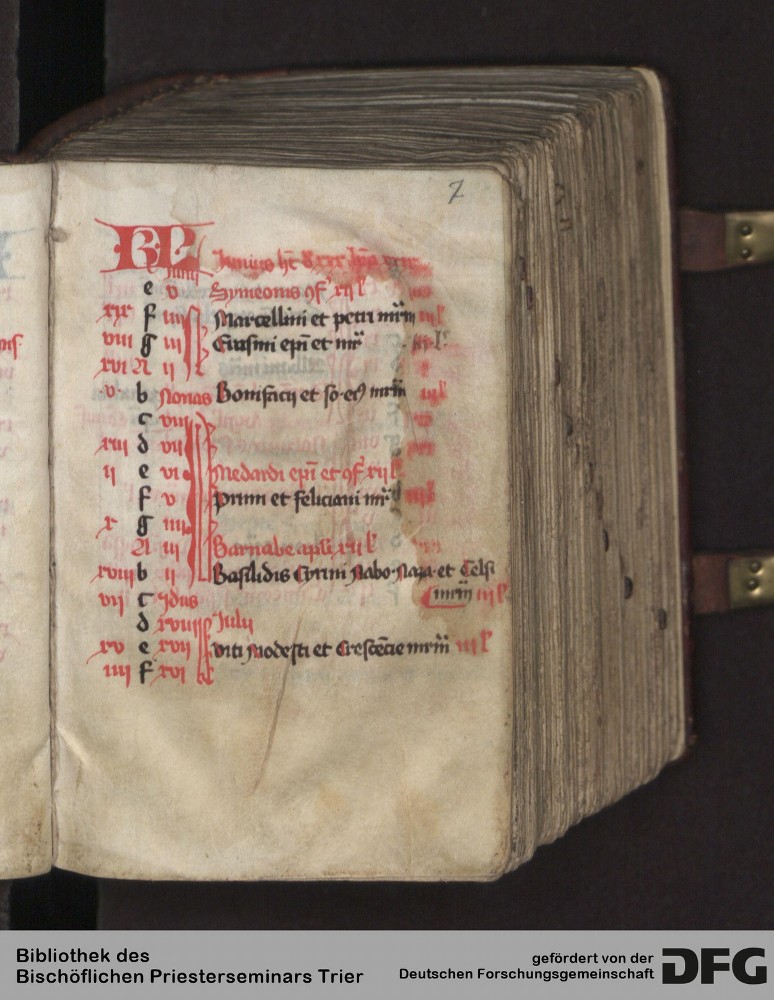 7
KL Junius hꝫ
Junii
e v Symeonis ꝯf xii l
xix f iiii Marcellini et petri mrm iii l
viii g iii Erasmi epi et mr iii l
xvi A ii
v b Nonas Bonifacii et so eꝰ mrm iii l
c viii
xiii d vii
ii e vi Medardi epi et ꝯf xii l
f v Primi et feliciani mr iii l
x g iiii
A iii Barnabe apli xii l
xviii b ii Basilidis Cyrini Nabo Naza et Celsi
mrm iii l
vii c Idus
d xviii Julii
xv e xvii Viti Modesti et Crescēcie mrm iii l
iiii f xvi
Bibliothek des
Bischöflichen Priesterseminars Trier
gefördert von der
Deutschen Forschungsgemeinschaft
DFG